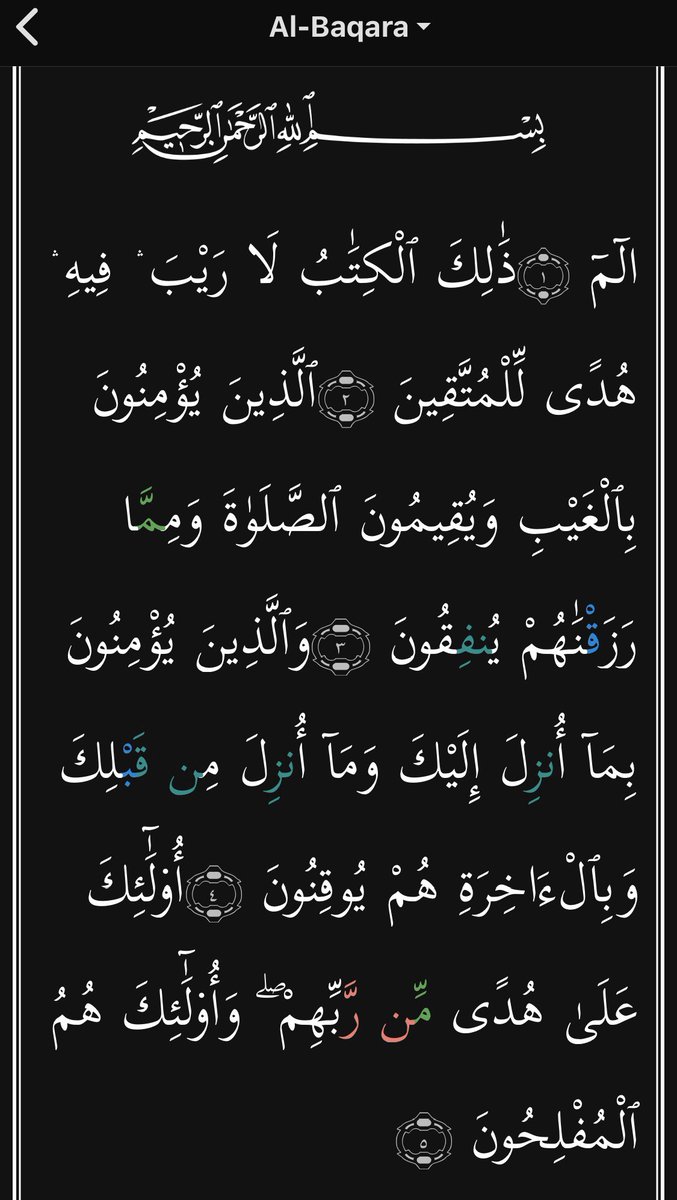 Al-Baqara
بِسْمِ ٱللَّهِ ٱلرَّحْمَٰنِ ٱلرَّحِيمِ
الٓمٓ ١ ذَٰلِكَ ٱلْكِتَٰبُ لَا رَيْبَ ۛ فِيهِ ۛ
هُدًى لِّلْمُتَّقِينَ ٢ ٱلَّذِينَ يُؤْمِنُونَ
بِٱلْغَيْبِ وَيُقِيمُونَ ٱلصَّلَوٰةَ وَمِمَّا
رَزَقْنَٰهُمْ يُنفِقُونَ ٣ وَٱلَّذِينَ يُؤْمِنُونَ
بِمَآ أُنزِلَ إِلَيْكَ وَمَآ أُنزِلَ مِن قَبْلِكَ
وَبِٱلْءَاخِرَةِ هُمْ يُوقِنُونَ ٤ أُو۟لَٰٓئِكَ
عَلَىٰ هُدًى مِّن رَّبِّهِمْ ۖ وَأُو۟لَٰٓئِكَ هُمُ
ٱلْمُفْلِحُونَ ٥